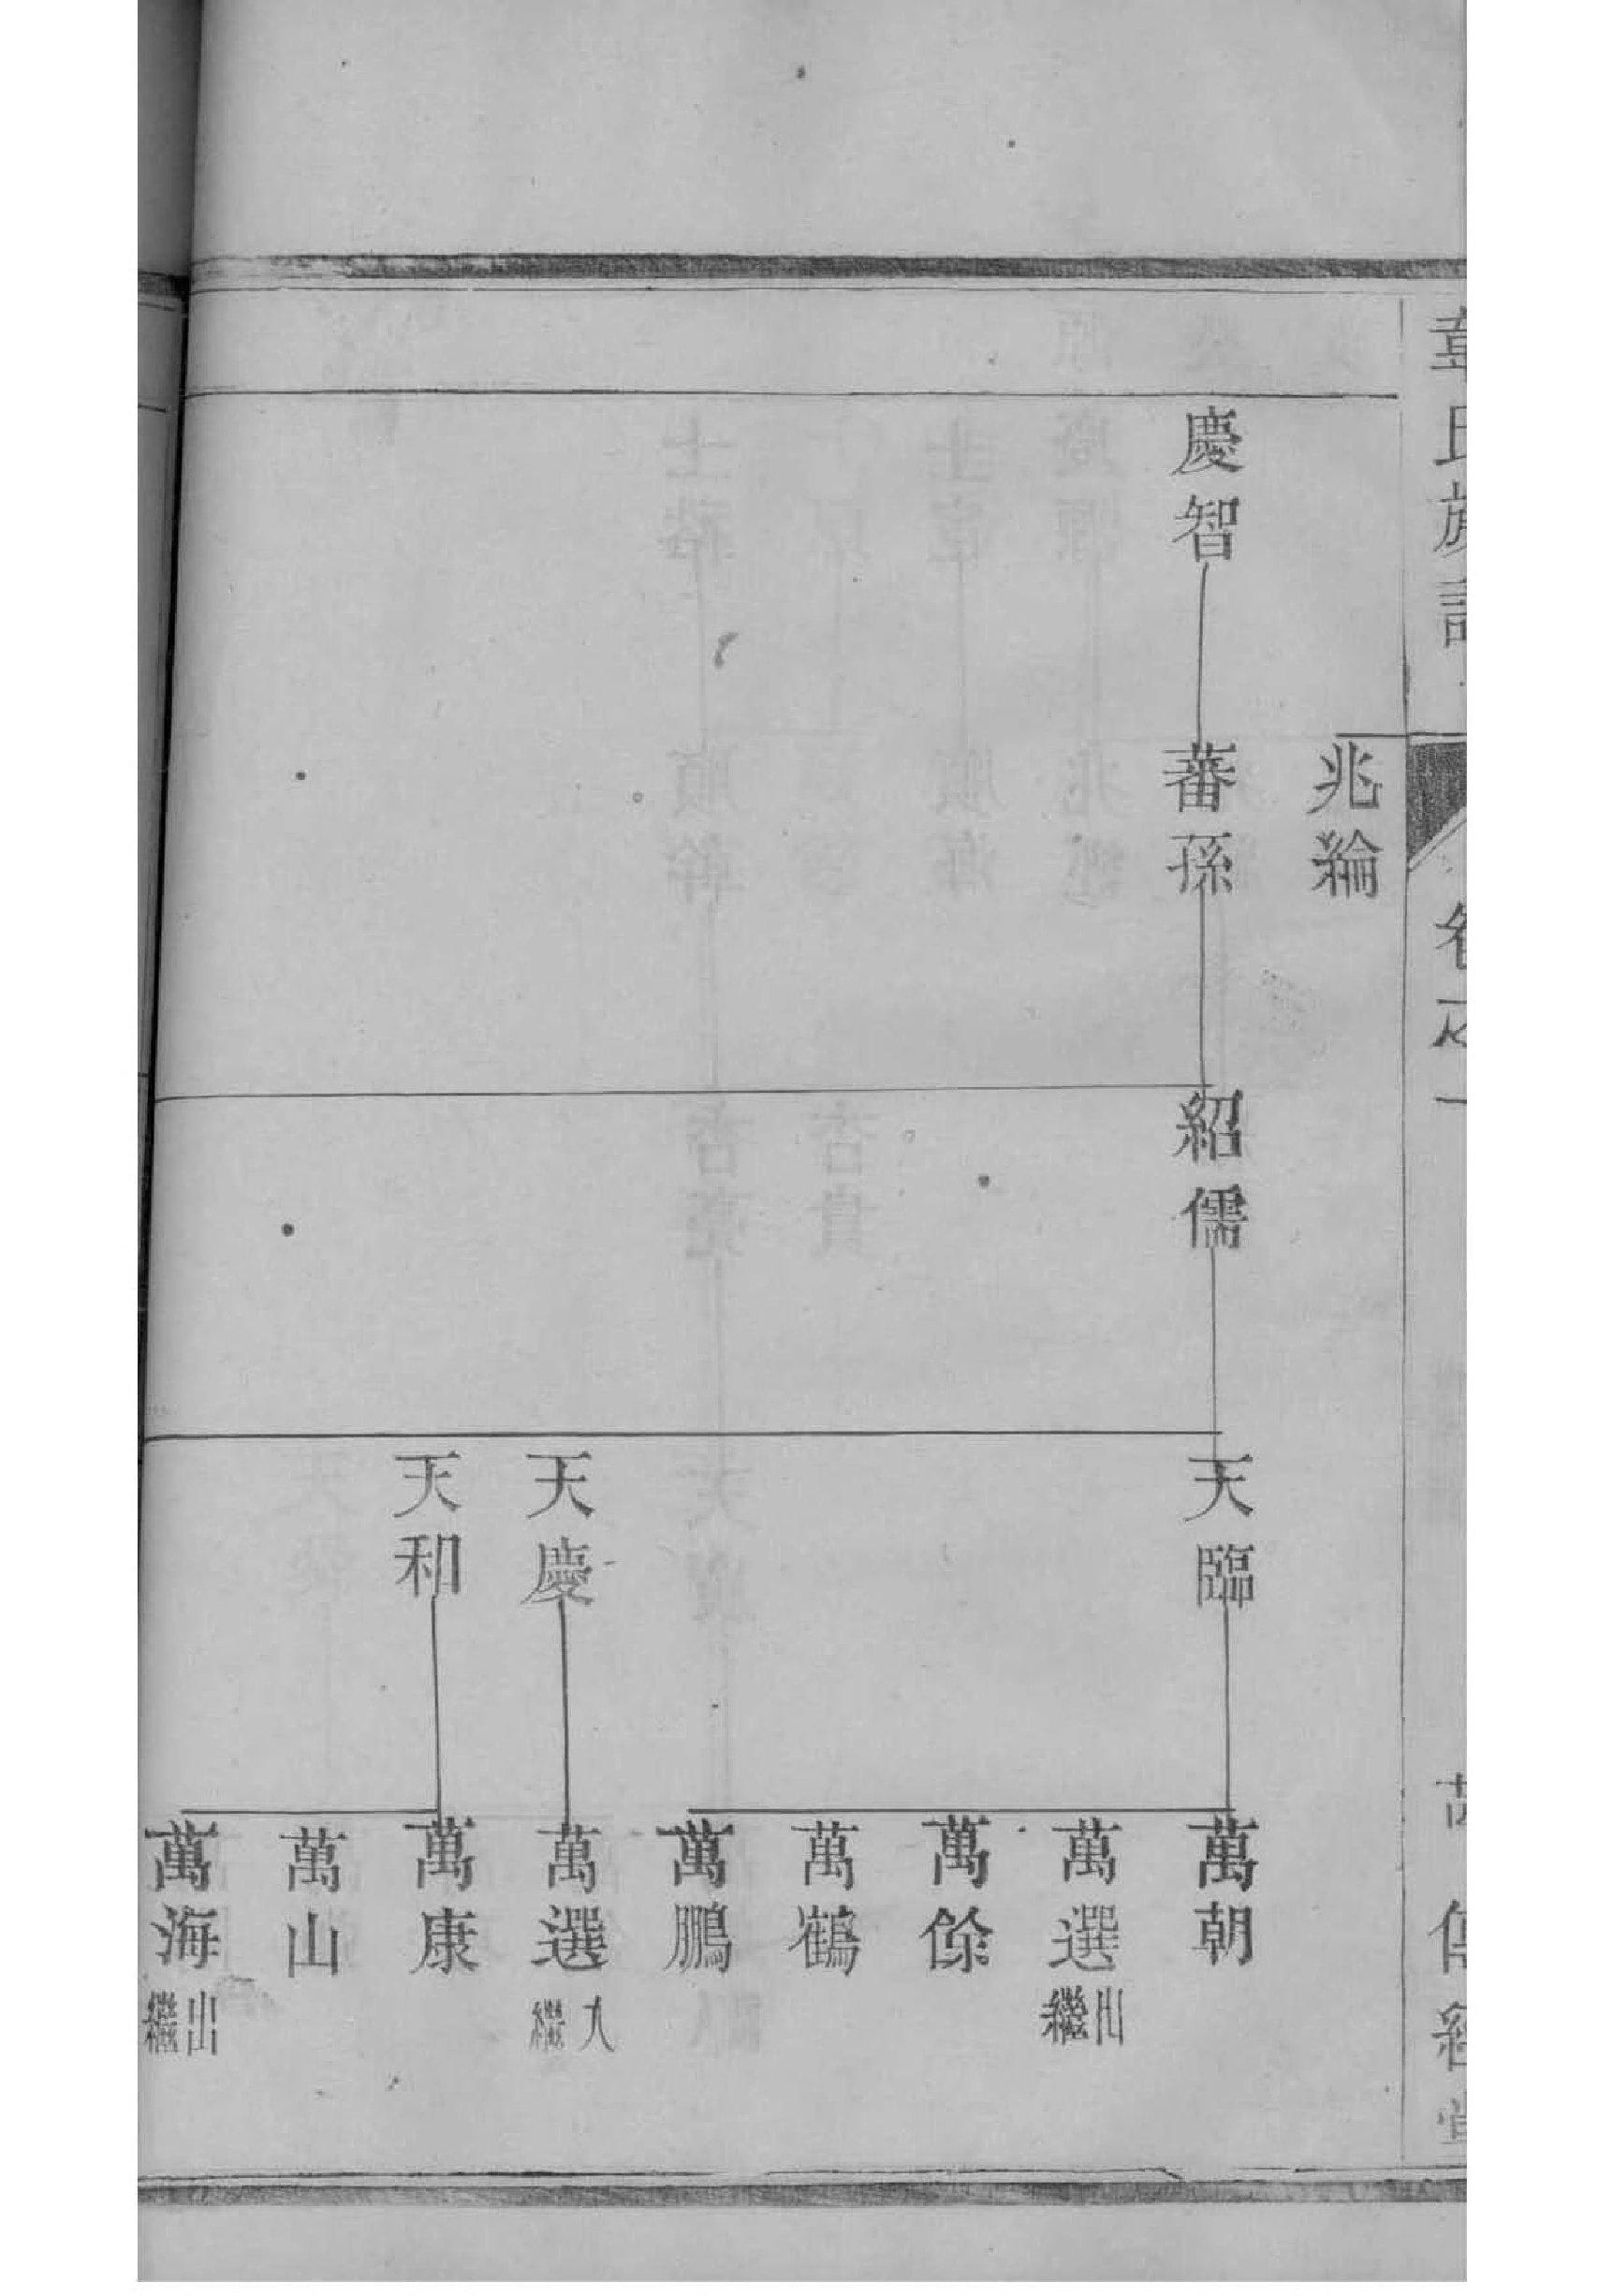 章氏族譜
卷之一
傳經堂
兆綸
慶智
蕃孫
紹儒
天臨
萬朝
萬選出繼
萬餘
萬鶴
萬鵬
天慶
萬選入繼
天和
萬康
萬山
萬海出繼